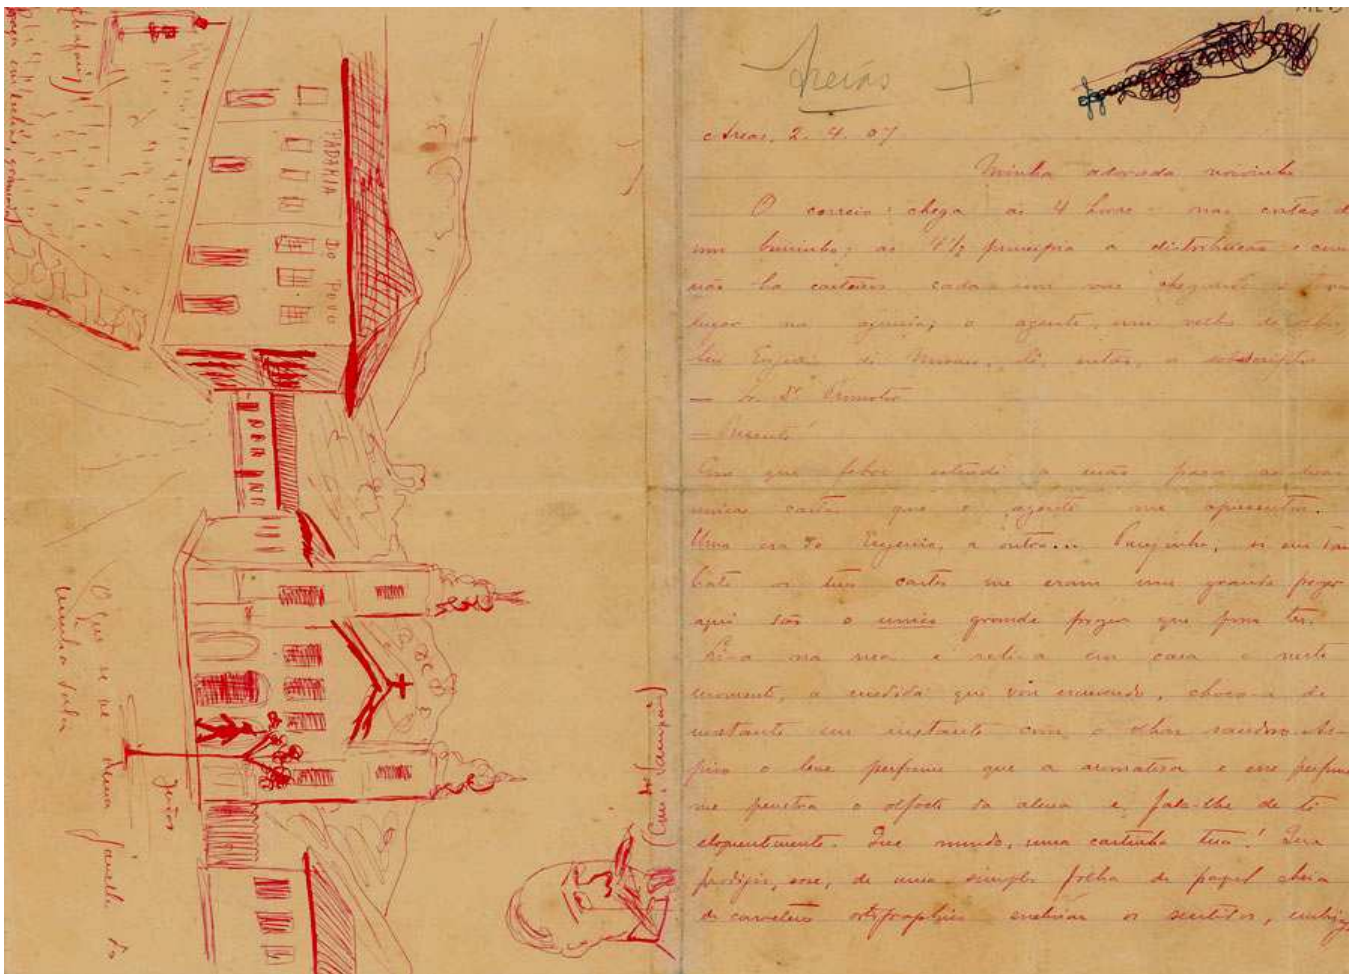 Areias +
Areas, 2. 4. 07
Minha adorada noivinha
O correio chega ás 4 horas nas costas d
um burrinho; ás 4 1/2 principia a distribuição e com
não ha carteiros cada um vae chegando e
na agencia; o agente, um velho de
de Moraes, lê, então, o sobscripto
— Dr. Promotor
— Presente!
que febre estendi a mão para as duas
unicas cartas que o agente me apresentou.
Uma era do Eugenio, a outra... Purezinha, si em Tau
baté as tuas cartas me eram um grande prazer
aqui são o unico grande prazer que posso ter.
na rua e reli-a em casa e neste
momento, a medida que vou escrevendo, choco-a de
instante em instante com o olhar saudoso. As-
piro o leve perfume que a aromatisa e esse perfume
me penetra o olfacto da alma e fala-lhe de ti
eloquentemente. Que mundo, uma cartinha tua! Que
prodigio, esse, de uma simples folha de papel cheia
de caracteres ortographicos enebriar os sentidos,
PADARIA DO POVO
O que se vê duma janella da
minha sala
(chafariz)